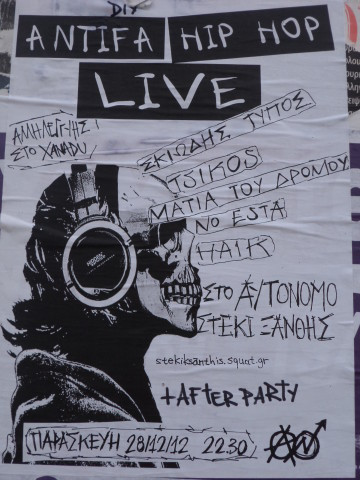 DIY
ANTIFA HIP HOP
LIVE
ΑΛΛΗΛΕΓΓΥΗΣ
ΣΤΟ XANADU
ΣΚΙΩΔΗΣ ΤΥΠΟΣ
TSIKOS
ΜΑΤΙΑ ΤΟΥ ΔΡΟΜΟΥ
NO ESTA
HAIR
ΣΤΟ Α/ΤΟΝΟΜΟ
ΣΤΕΚΙ ΞΑΝΘΗΣ
stekiksanthis.squat.gr
+AFTER PARTY
ΠΑΡΑΣΚΕΥΗ 28/12/12 22.30